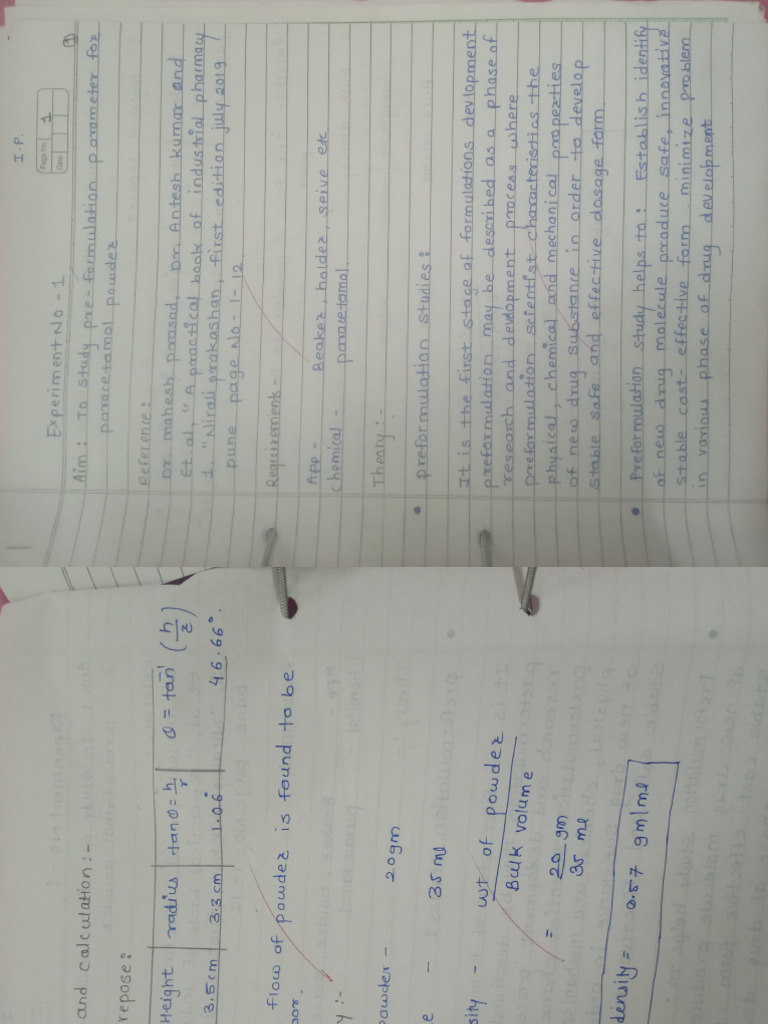 I.P.
Page No. 1
Date
Experiment No - 1
①
Aim : To study pre-formulation parameter for
paracetamol powder
Reference :
Dr. mahesh prasad, Dr. Antesh kumar and
Et al, " A practical book of industrial pharmacy
1. "Nirali prakashan, first edition july 2019 /
pune page No - 1 - 12
Requirement -
App - Beaker, holder, seive etc
Chemical - paracetamol
Theory :-
• preformulation studies :
It is the first stage of formulations devlopment
preformulation may be described as a phase of
research and devlopment process where
preformulation scientist characteristias the
physical, chemical and mechanical properties
of new drug substance in order to develop
stable safe and effective dosage form
• Preformulation study helps to : Establish identify
of new drug molecule produce safe, innovative
stable cost-effective form minimize problem
in various phase of drug development
and calculation :-
repose :
Height radius tanθ = h/r θ = tan⁻¹ (h/r)
3.5cm 3.3cm 1.06 46.66°.
flow of powder is found to be
oor.
y :-
powder - 20gm
e - 35 ml
sity - wt of powder
Bulk volume
= 20 gm
35 ml
density = 0.57 gm/ml